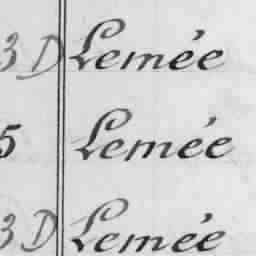 3 D Lemée
5 Lemée
3 D Lemée